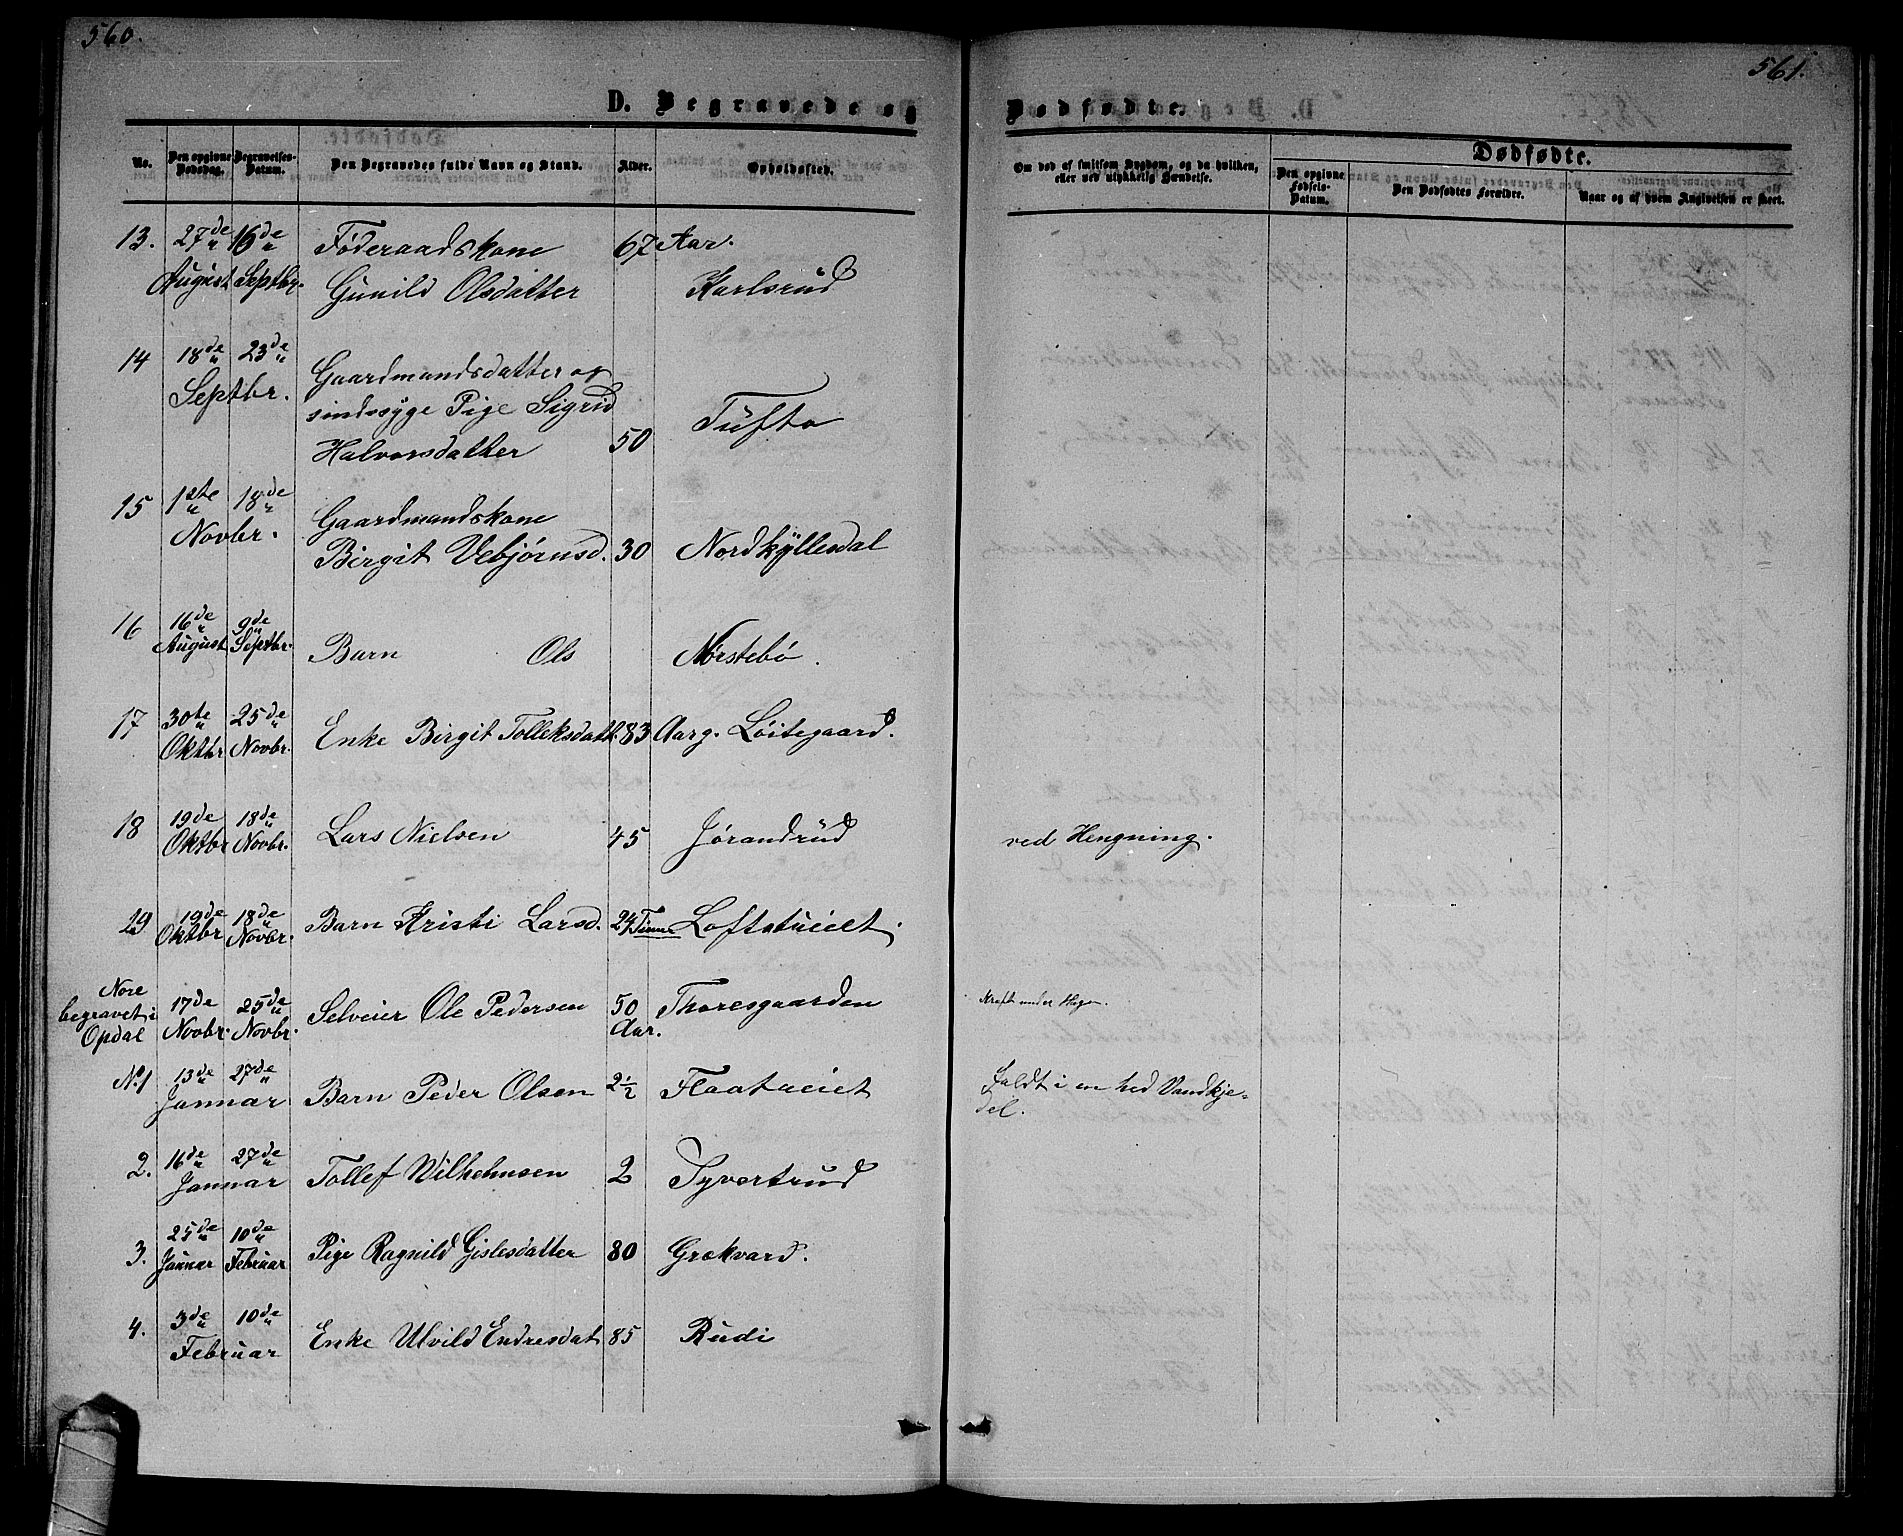 560.
561.
D. Begravede og
Dødfødte.
No.
Den opgivne Dødsdag.
Begravelses-Datum.
Den Begravedes fulde Navn og Stand.
Alder.
Opholdssted.
Om død af smitsom Sygdom, og da hvilken,
eller ved ulykkelig Hændelse.
Dødfødte.
Den opgivne Fødsels-Datum.
Den Dødfødtes Forældre.
Naar og af hvem Angivelsen er skeet.
13. 27de 16de Føderaadskone 67 Aar.
August Septbr. Gunild Olsdatter Karlsrud
14 18de 23de Gaardmandsdatter og
Septbr. sindssyge Pige Sigrid Tufto
Halvorsdatter 50
15 12te 18de Gaardmandskone
Novbr. Birgit Vebjørnsd. 30 Nordkyllesdal
16 16de 9de
August Septbr. Barn Ols Nørstebö.
17 30te 25de Enke Birgit Tolleksdatt. 83 Aarg. Löitegaard.
Oktbr Novbr.
18 19de 18de Lars Nielsen 45 Jörandrud ved Hengning.
Oktbr Novbr.
19 19de 18de Barn Kristi Larsd. 24 Timer Loftstueiet.
Oktbr Novbr.
Nore
begravet i 17de 25de Selveier Ole Pedersen 50 Thoresgaarden
Opdal Novbr. Novbr. Aar.
No. 1 13de 27de Barn Peder Olsen 2½ Flaatueiet Faldt i en hed Vandkje-
Januar del.
2. 16de 27de Tollef Wilhelmsen 2 Syvertrud
Januar
3. 25de 10de Pige Ragnild Gislesdatter 80 Grækvard.
Januar Februar
4. 3de 10de Enke Ulvild Endresdat 85 Rudi
Februar